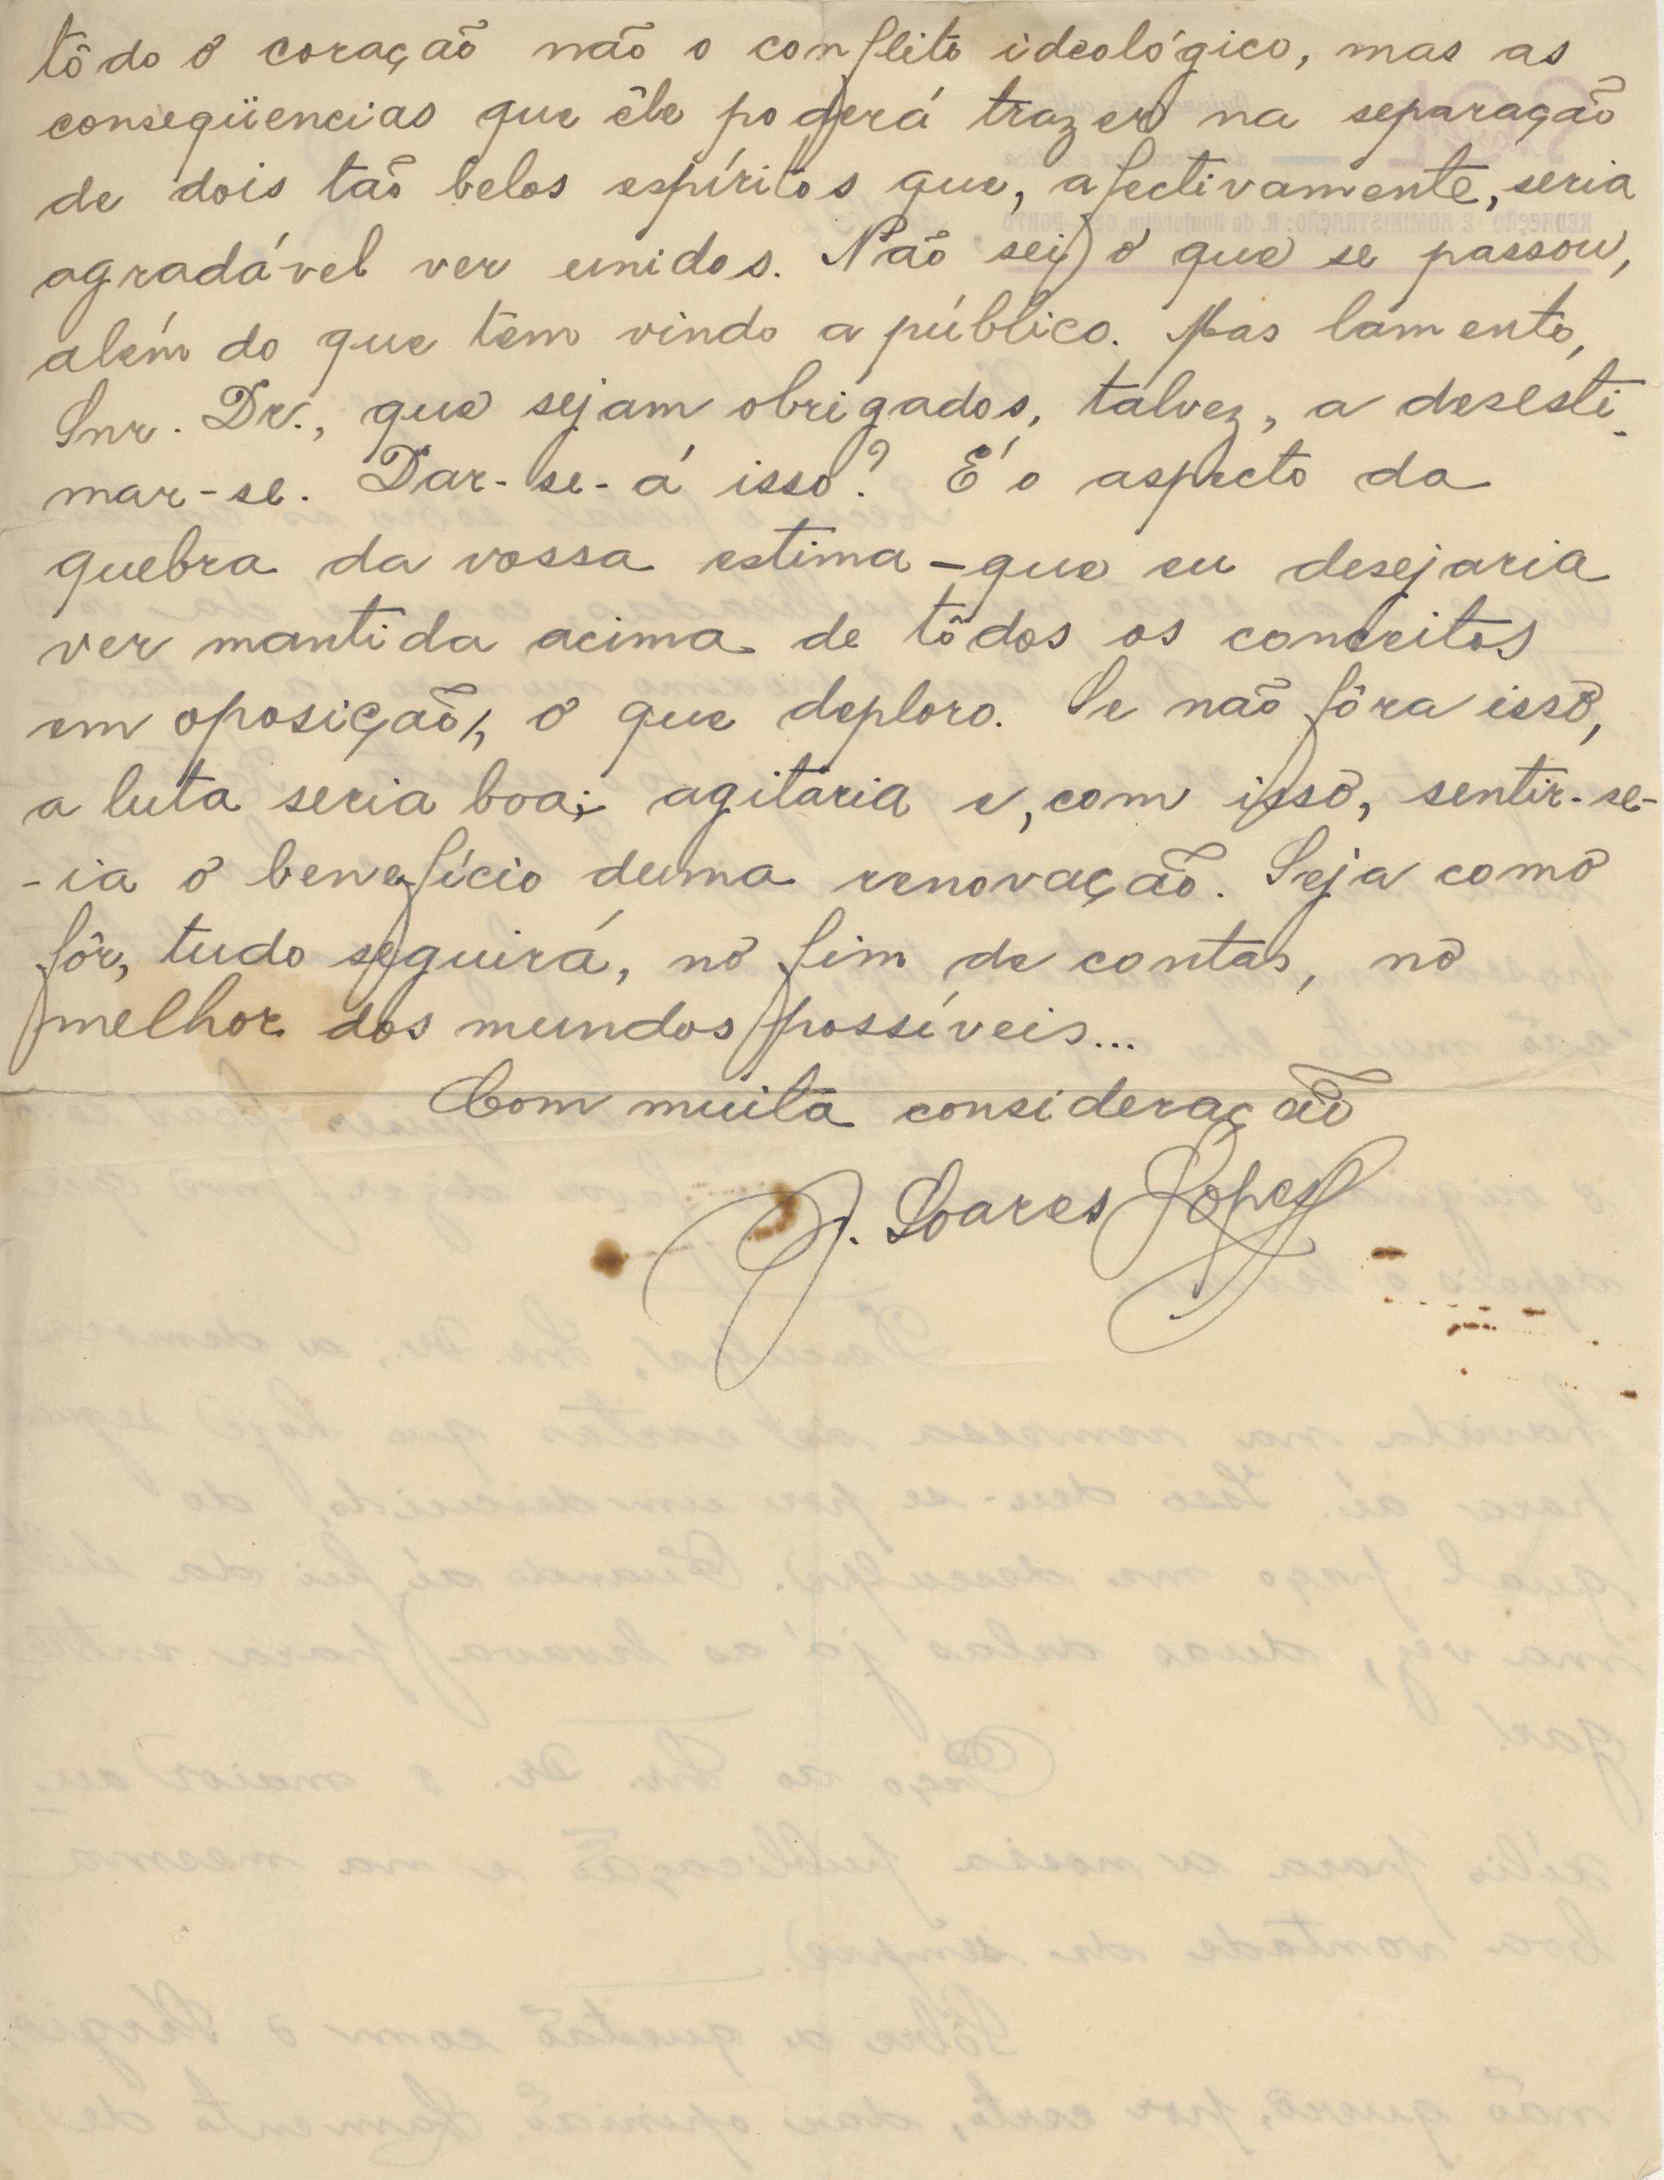 tôdo o coração não o conflito ideológico, mas as
conseqüencias que êle poderá trazer na separação
de dois tão belos espíritos que, afectivamente, seria
agradável ver unidos. Não sei o que se passou,
além do que tem vindo a público. Mas lamento,
Snr. Dr., que sejam obrigados, talvez, a desesti-
mar-se. Dar-se-á isso? É o aspecto da
quebra da vossa estima – que eu desejaria
ver mantida acima de tôdos os conceitos
em oposição, o que deploro. Se não fôra isso,
a luta seria boa; agitaria e, com isso, sentir-se-
-ia o benefício duma renovação. Seja como
fôr, tudo seguirá, no fim de contas, no
melhor dos mundos possíveis...
Com muita consideração
J. Soares Lopes